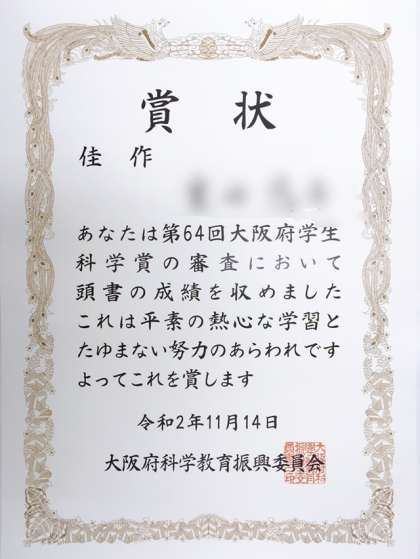 賞 状
佳 作
あなたは第64回大阪府学生
科学賞の審査において
頭書の成績を収めました
これは平素の熱心な学習と
たゆまない努力のあらわれです
よってこれを賞します
令和2年11月14日
大阪府科学教育振興委員会